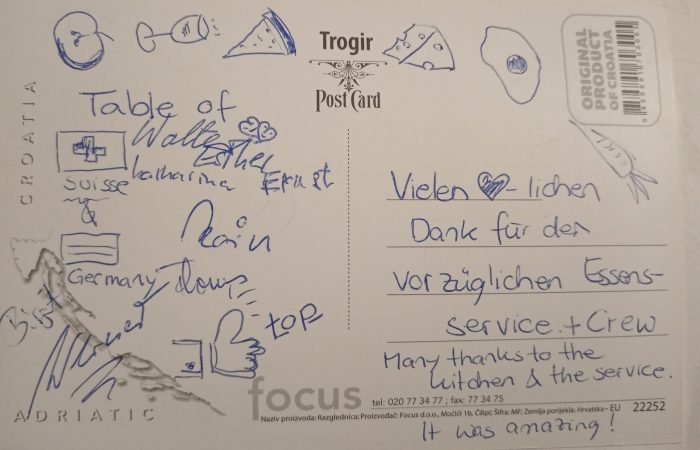 Trogir
Post Card
ORIGINAL
PRODUCT
OF CROATIA
CROATIA
Table of
Walter
Esther
Katharina Ernst
Suisse
&
Germany
top
Vielen -lichen
Dank für den
vorzüglichen Essens-
service + Crew
Many thanks to the
kitchen & the service.
It was amazing!
focus
tel: 020 77 34 77 ; fax: 77 34 75
Naziv proizvoda: Razglednica; Proizvođač: Focus d.o.o., Močići 1b, Čilipi; Šifra: MF; Zemlja porijekla: Hrvatska - EU 22252
ADRIATIC